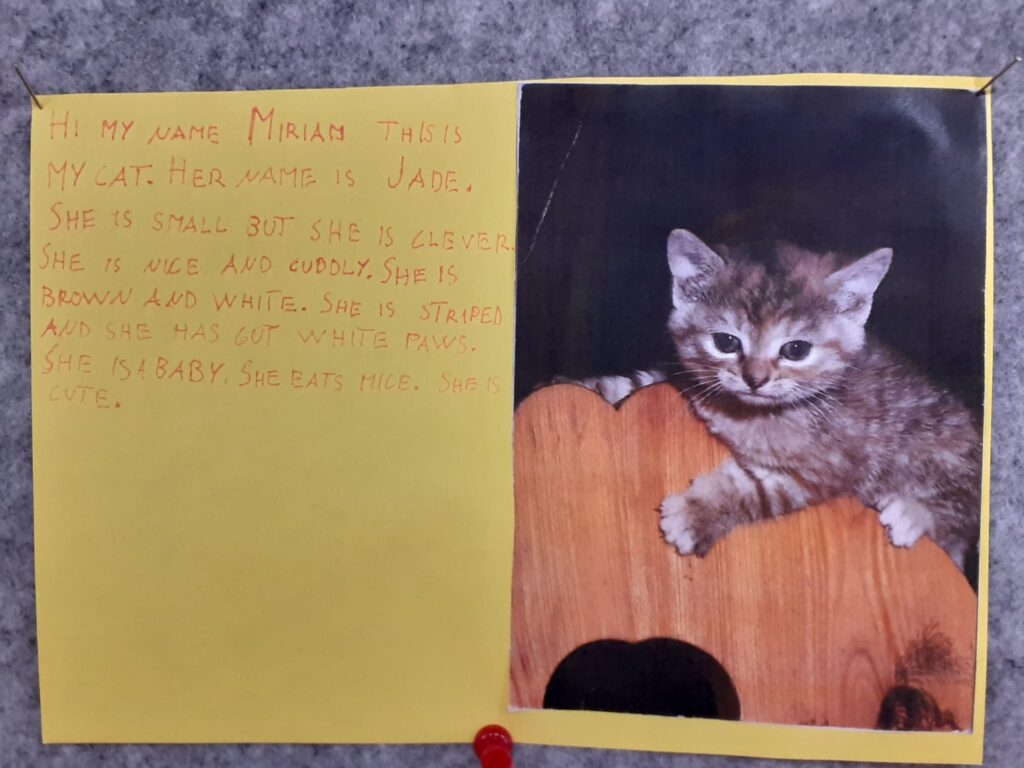 HI MY NAME MIRIAM THIS IS
MY CAT. HER NAME IS JADE.
SHE IS SMALL BUT SHE IS CLEVER.
SHE IS NICE AND CUDDLY. SHE IS
BROWN AND WHITE. SHE IS STRIPED
AND SHE HAS GOT WHITE PAWS.
SHE IS A BABY. SHE EATS MICE. SHE IS
CUTE.